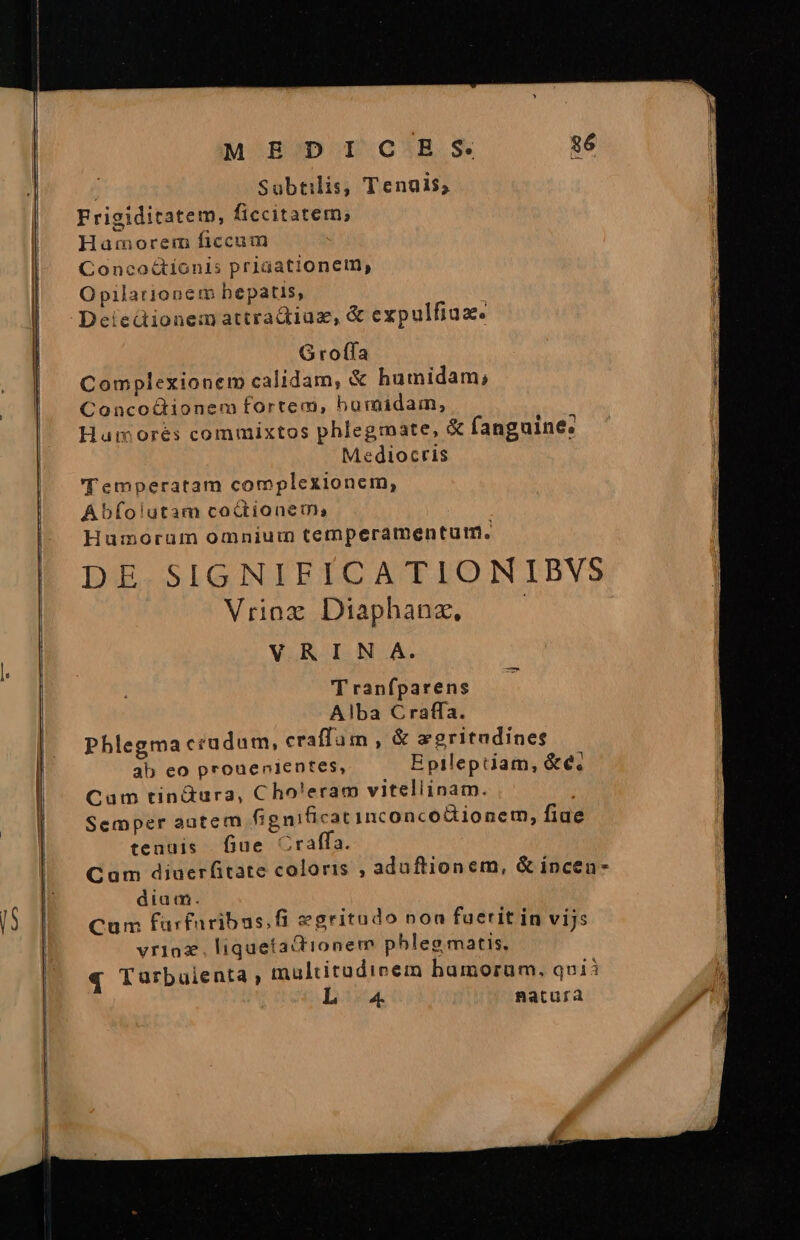 MEDICES. 86
Subtilis, Tenuis,
Frigiditatem, ſiccitatem,
Humorem ſiccum
Concoctionis priuationem,
Opilationem hepatis,
Deiectionem attractiuæ, & expulſiuæ.
Groſſa
Complexionem calidam, & humidam,
Concoctionem fortem, humidam,
Humorés commixtos phlegmate, & ſanguine.
Mediocris
Temperatam complexionem,
Abſolutam coctionem,
Humorum omnium temperamentum.
DE SIGNIFICATIONIBVS
Vrinæ Diaphanæ,
VRINA.
Tranſparens
Alba Craſſa.
Phlegma crudum, craſſum, & ægritudines
ab eo prouenientes, Epileptiam, &c.
Cum tinctura, Choleram vitellinam.
Semper autem ſignificat inconcoctionem, ſiue
tenuis ſiue Craſſa.
Cum diuerſitate coloris, aduſtionem, & incen-
dium.
Cum furfuribus, ſi ægritudo non fuerit in vijs
vrinæ, liquefactionem phlegmatis.
¶ Turbulenta, multitudinem humorum, quià
L 4 natura